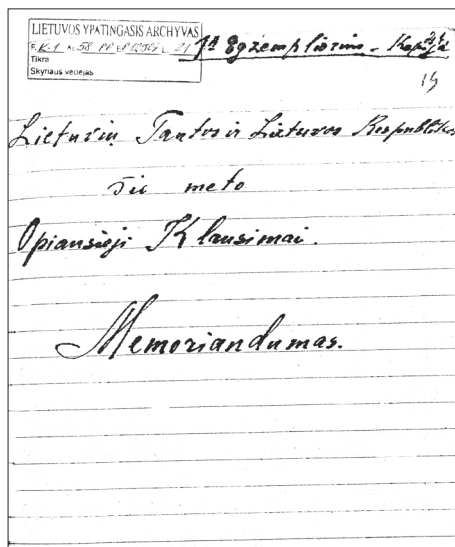 LIETUVOS YPATINGASIS ARCHYVAS
F. K-1 Ap. 58 L. 21
Tikra
Skyriaus vedėjas
Egzempliorius - Kopija
15
Lietuvių Tautos ir Lietuvos Respublikos
šio meto
Opiausieji Klausimai.
Memoriandumas.